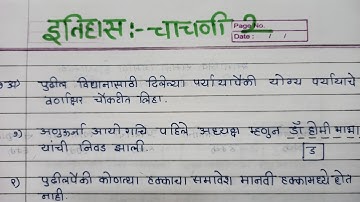 इतिहास :- चाचणी 2
Page No.
Date : / /
अ) पुढील विधानासाठी दिलेल्या पर्यायापैकी योग्य पर्यायाचे
वर्णाक्षर चौकटीत लिहा.
१) अणुऊर्जा आयोगाचे पहिले अध्यक्ष म्हणून डॉ होमी भाभा
यांची निवड झाली. ड
२) पुढीलपैकी कोणत्या हक्काचा समावेश मानवी हक्कामध्ये होत
नाही.